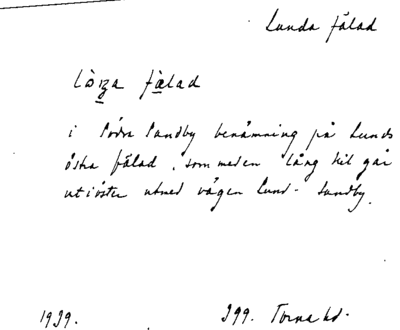 Lunda fälad
fälad
i Södra Sandby benämning på Lunds
östra fälad, som med en lång kil går
ut i öster utmed vägen Lund - Sandby.
1939. 399. Torna hd.